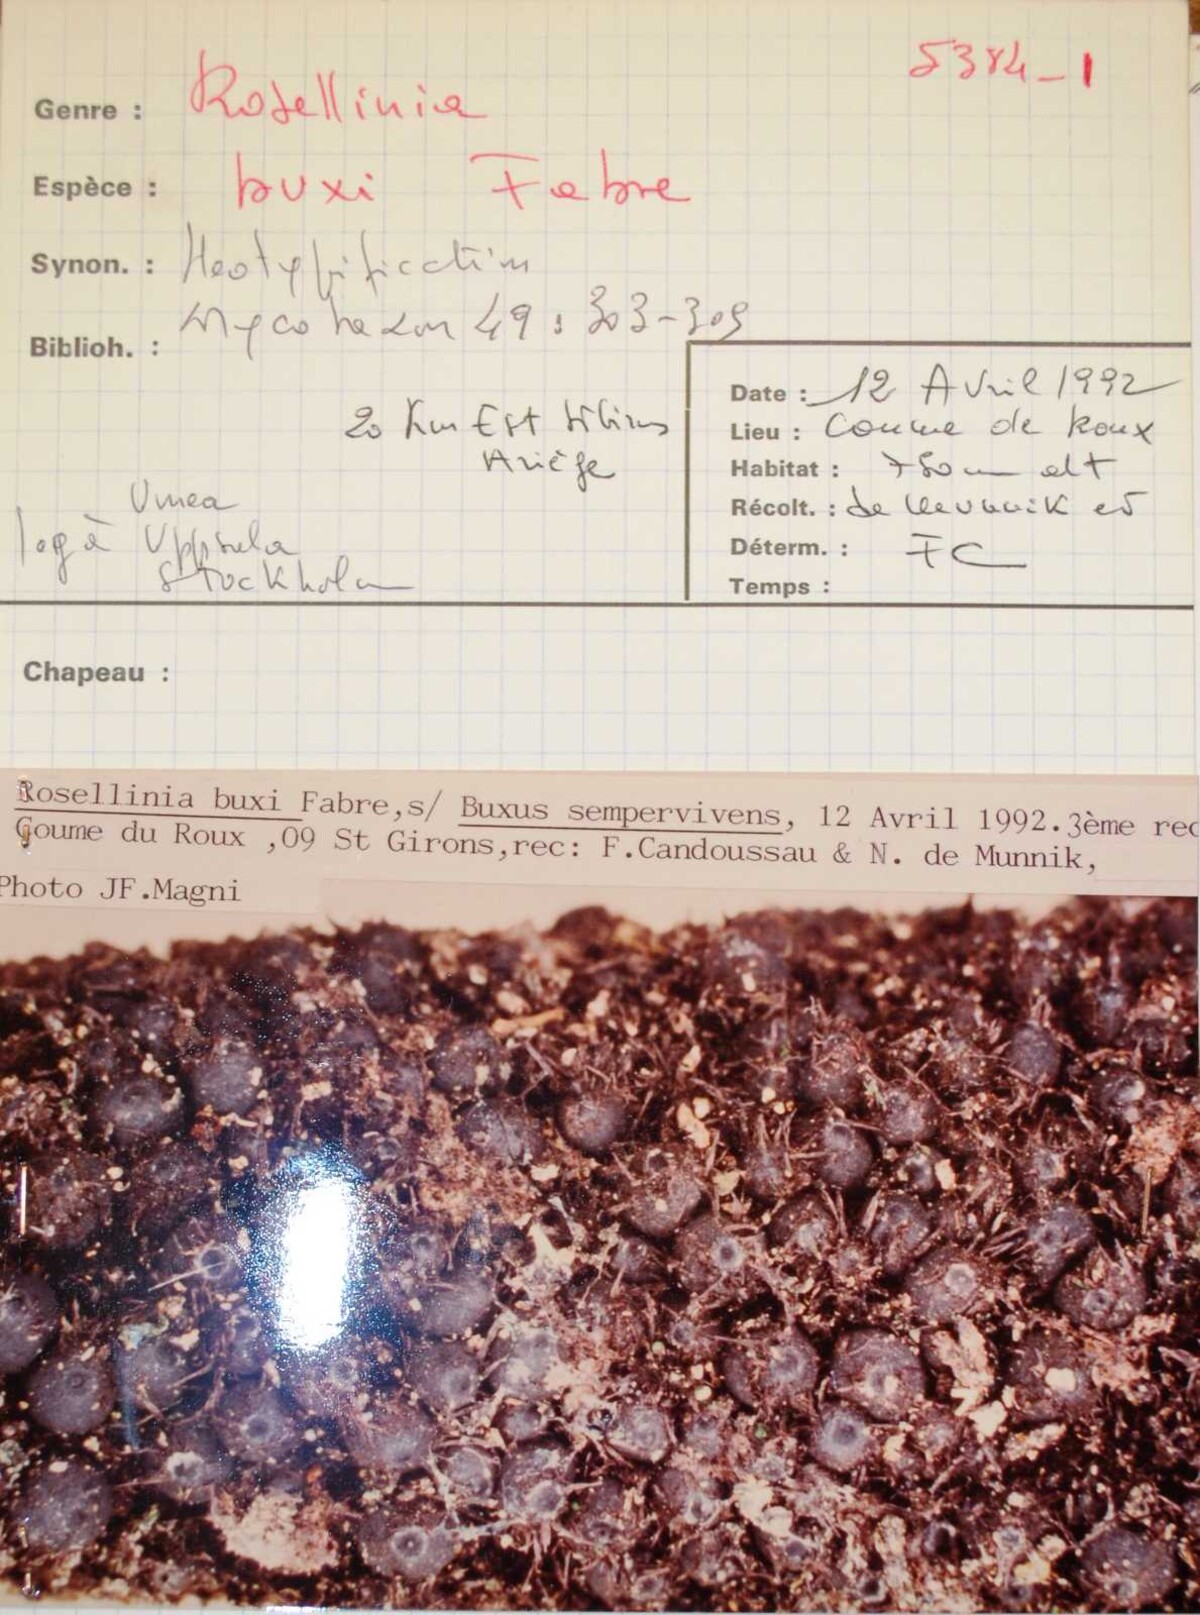 5384-1
Genre : Rosellinia
Espèce : buxi Fabre
Synon. : Neotypification
Mycotaxon 49 : 303-309
Biblioh. :
Date : 12 Avril 1992
20 Km Est
Lieu : Coume de Roux
Ariège
Habitat : 750 m alt
Umea
Récolt. : de Meunnik et
leg à Uppsala
Déterm. : FC
Stockholm
Temps :
Chapeau :
Rosellinia buxi Fabre,s/ Buxus sempervivens, 12 Avril 1992.3ème rec
Goume du Roux ,09 St Girons,rec: F.Candoussau & N. de Munnik,
Photo JF.Magni